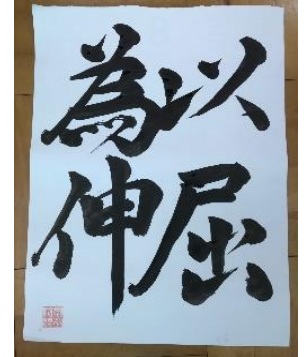 以屈
為伸